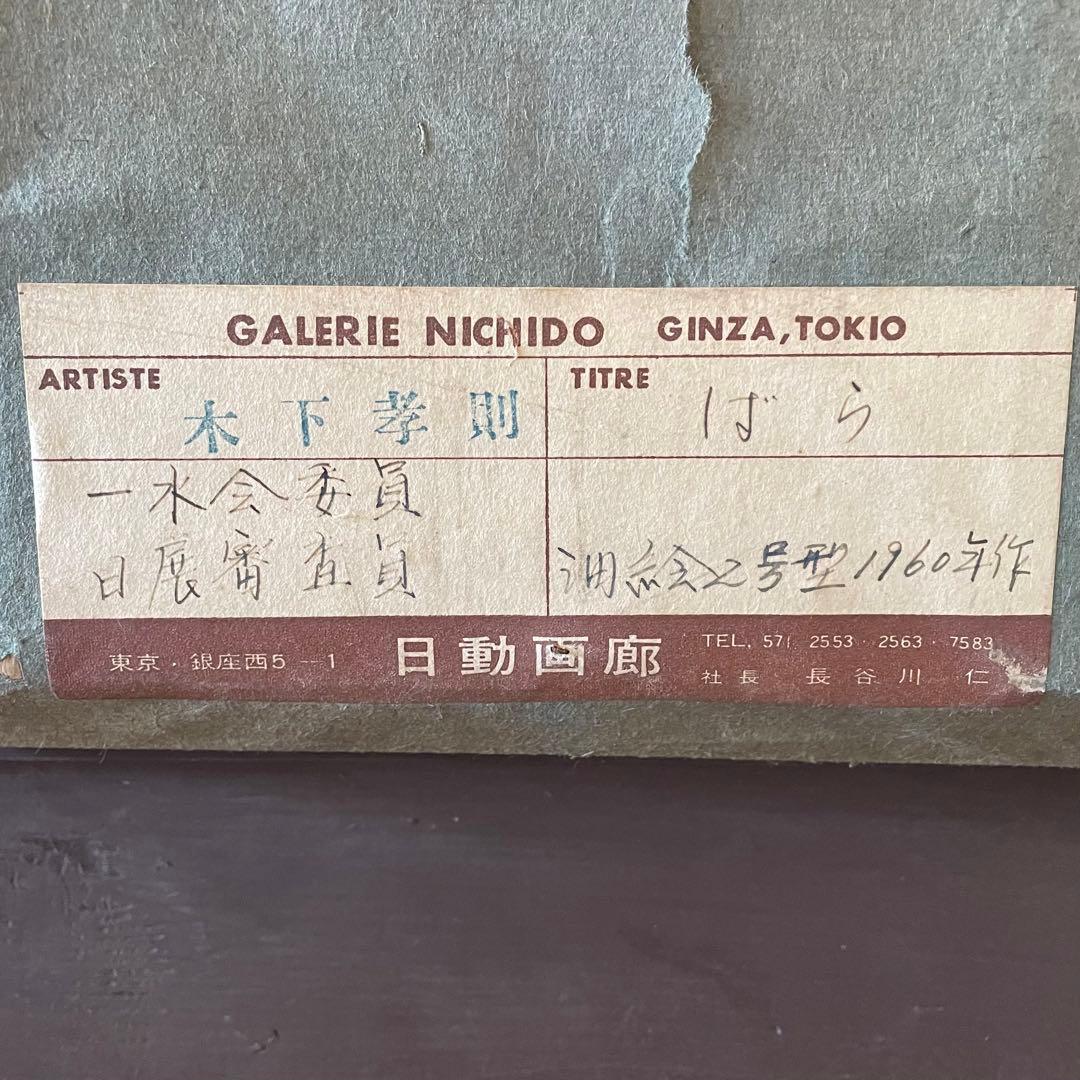 GALERIE NICHIDO GINZA, TOKIO
ARTISTE
木下孝則
TITRE
ばら
一水会委員
日展審査員
油絵2号型1960年作
東京・銀座西5-1
日動画廊
TEL, 571 2553・2563・7583
社長 長谷川 仁